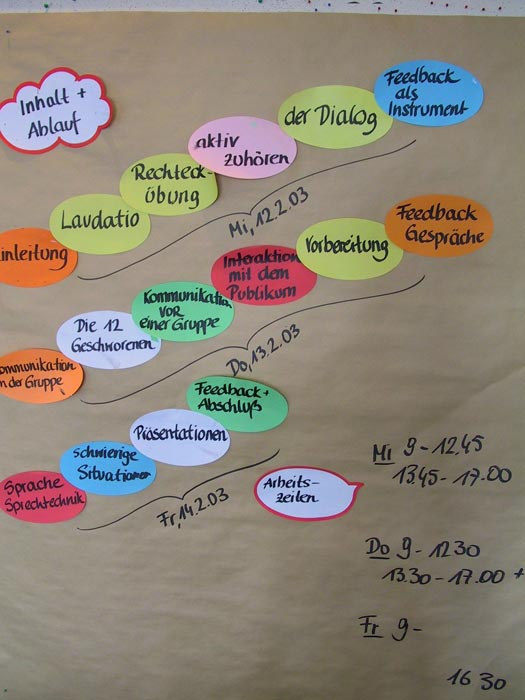 Inhalt +
Ablauf
inleitung
Laudatio
Rechteck-
übung
aktiv
zuhören
der Dialog
Feedback
als
Instrument
Mi, 12.2.03
ommunikation
n der Gruppe
Die 12
Geschworenen
Kommunikation
vor
einer Gruppe
Interaktion
mit dem
Publikum
Vorbereitung
Feedback
Gespräche
Do, 13.2.03
Sprache
Sprechtechnik
schwierige
Situationen
Präsentationen
Feedback +
Abschluß
Fr, 14.2.03
Arbeits-
zeilen
Mi 9 - 12.45
13.45 - 17.00
Do 9 - 12 30
13.30 - 17.00 +
Fr 9 -
16 30